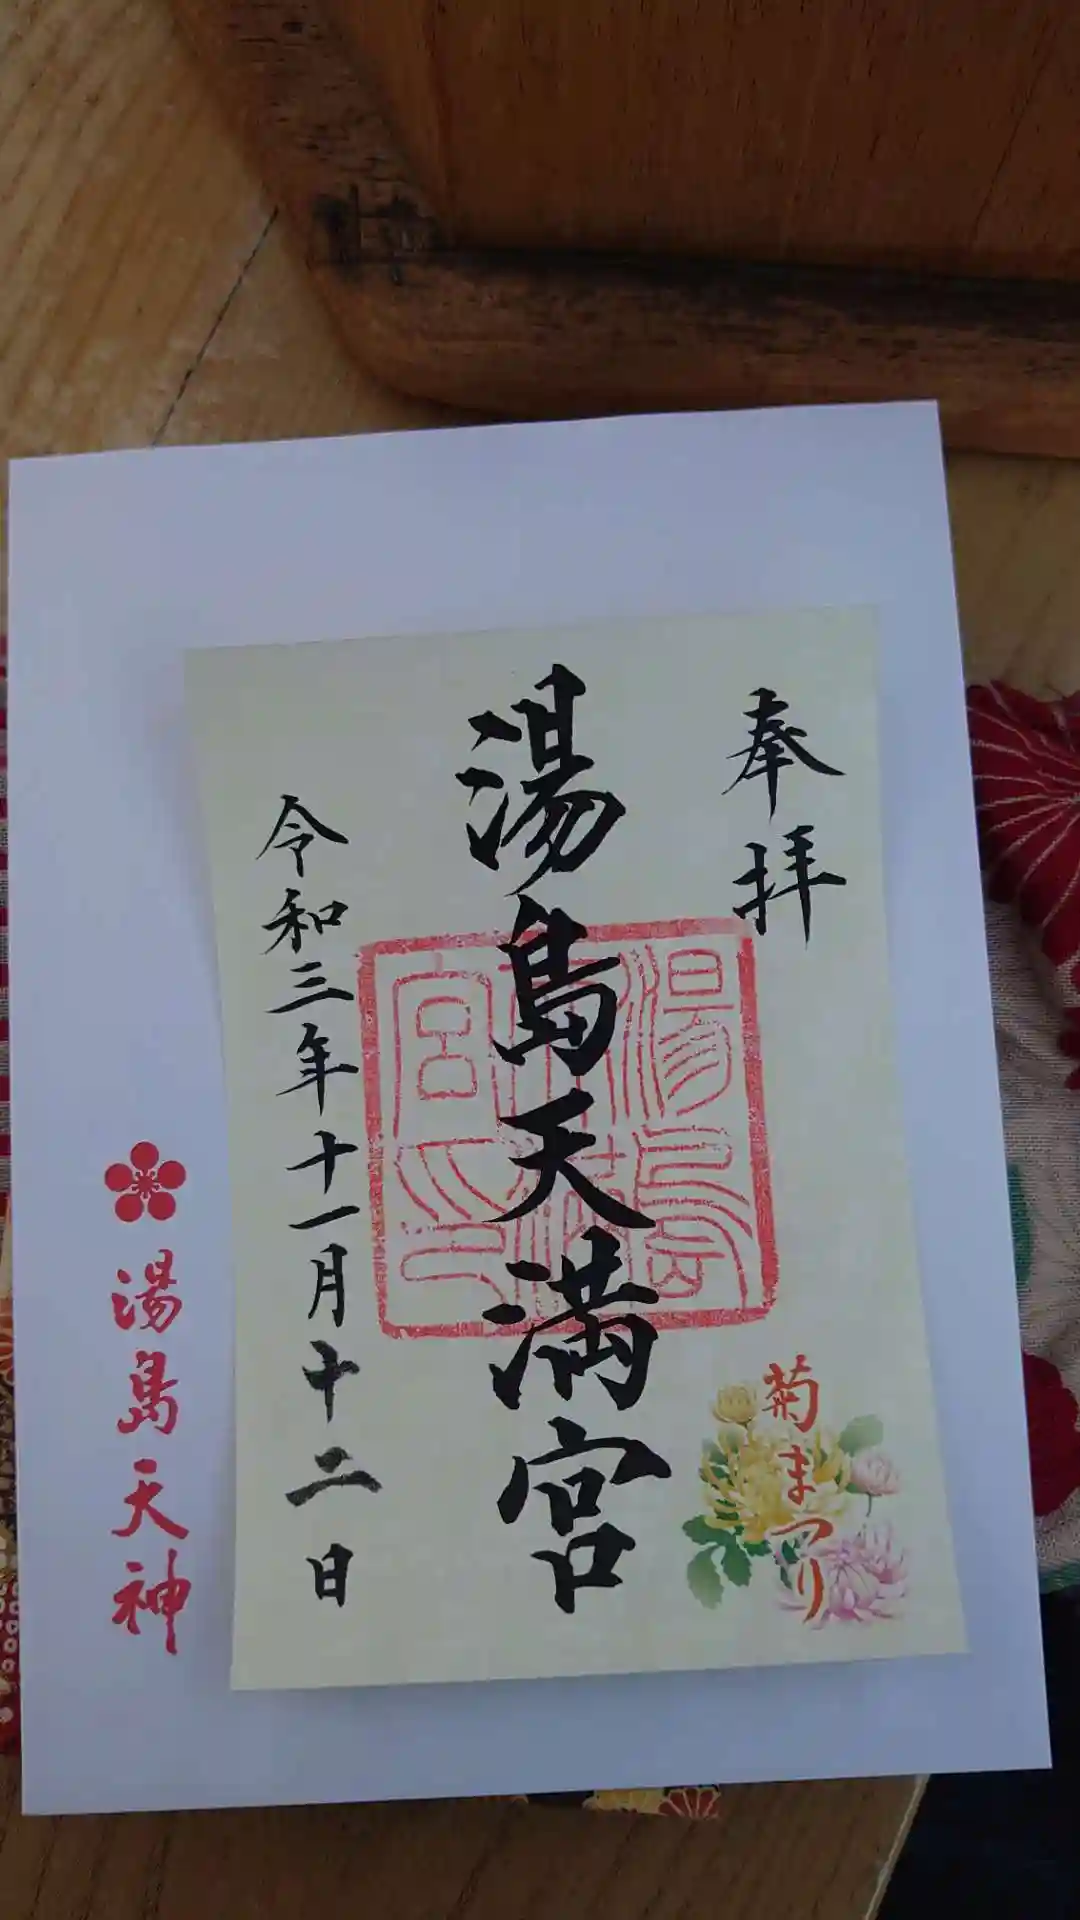 奉拝
湯島天満宮
令和三年十一月十二日
菊まつり
湯島天満宮之印
湯島天神